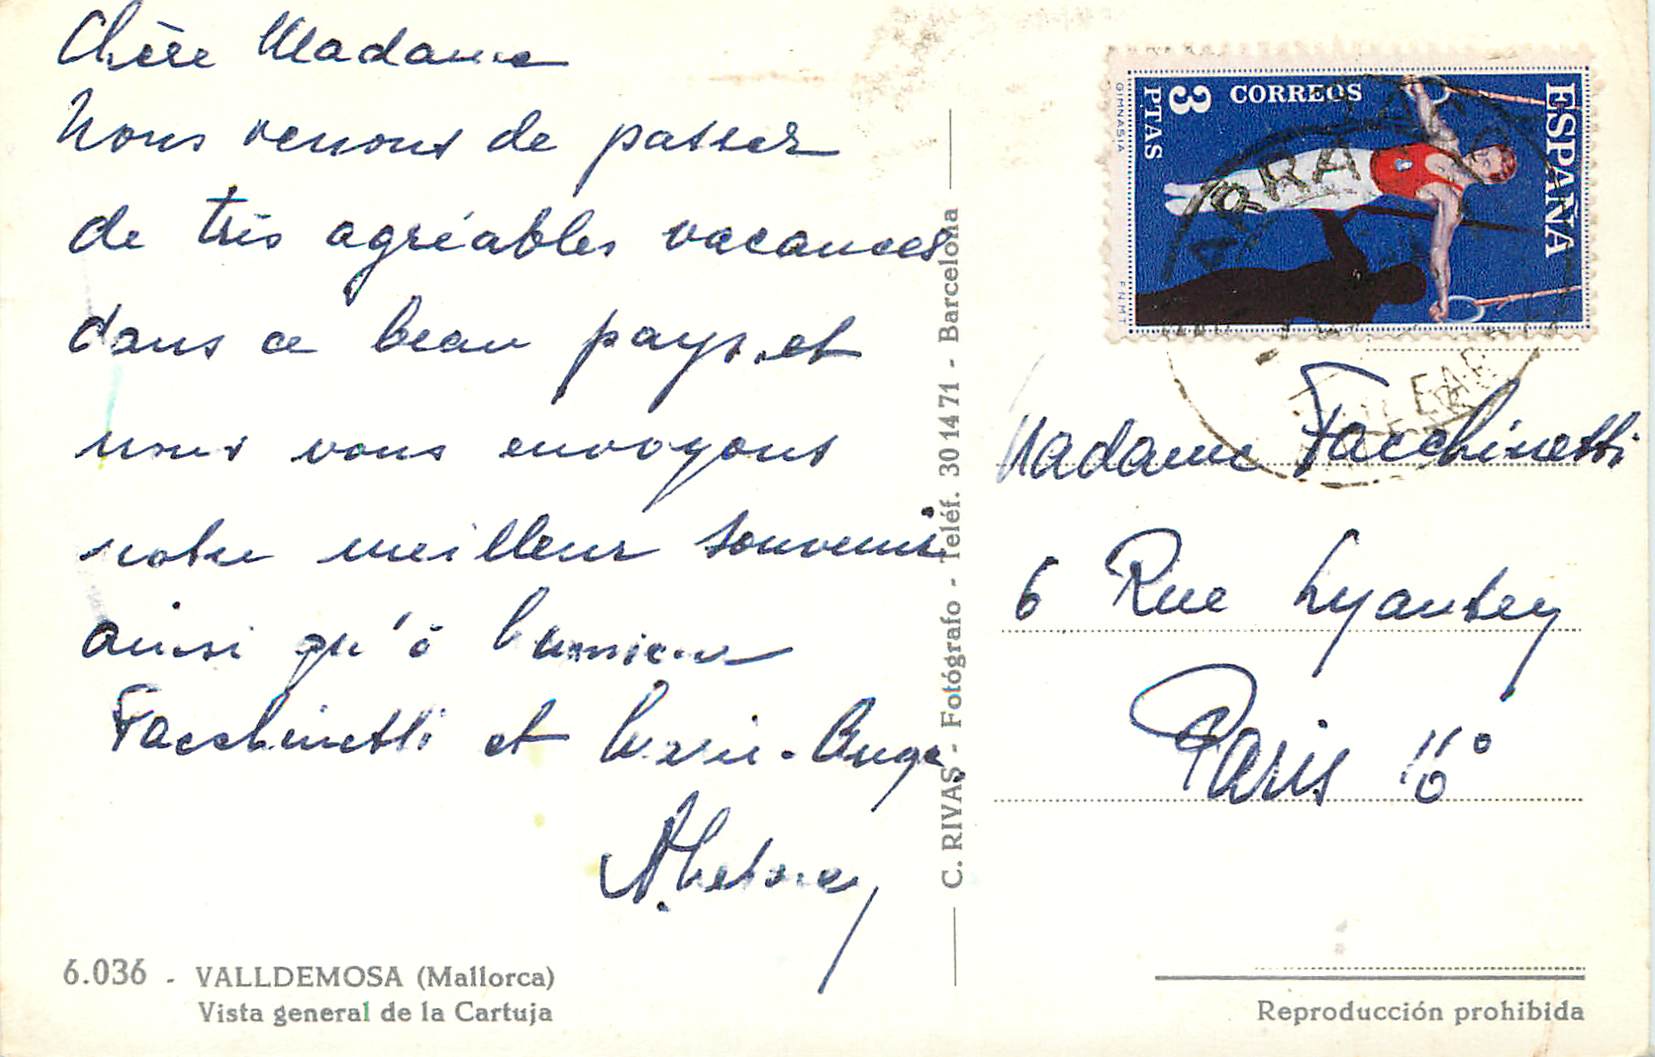 Chère Madame
Nous venons de passer
de très agréables vacances
dans ce beau pays, et
nous vous envoyons
notre meilleur souvenir
ainsi qu'à Monsieur
Facchinetti et Marie-Ange.
6.036 - VALLDEMOSA (Mallorca)
Vista general de la Cartuja
C. RIVAS - Fotógrafo - Teléf. 30 14 71 - Barcelona
ESPAÑA
CORREOS
3 PTAS
GIMNASIA
F.N.M.T.
Madame Facchinetti
6 Rue Lyautey
Paris 16°
Reproducción prohibida